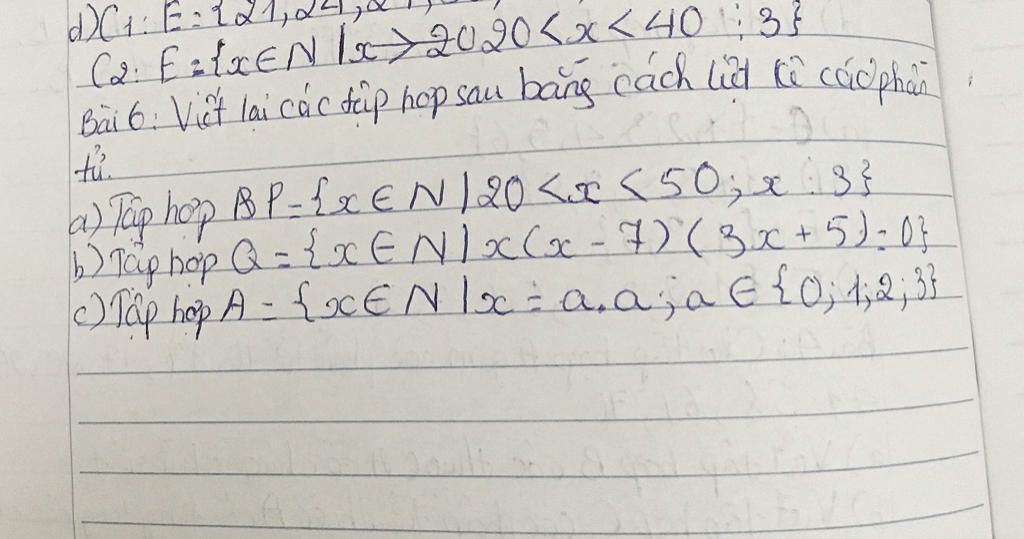 d) C1: E = {21, 24,
C2: E = {x ∈ N | x > 2020 < x < 40 ⋮ 3}
Bài 6: Viết lại các tập hợp sau bằng cách liệt kê các phần
tử.
a) Tập hợp BP = {x ∈ N | 20 < x < 50; x ⋮ 3}
b) Tập hợp Q = {x ∈ N | x(x - 7)(3x + 5) = 0}
c) Tập hợp A = {x ∈ N | x = a.a; a ∈ {0; 1; 2; 3}